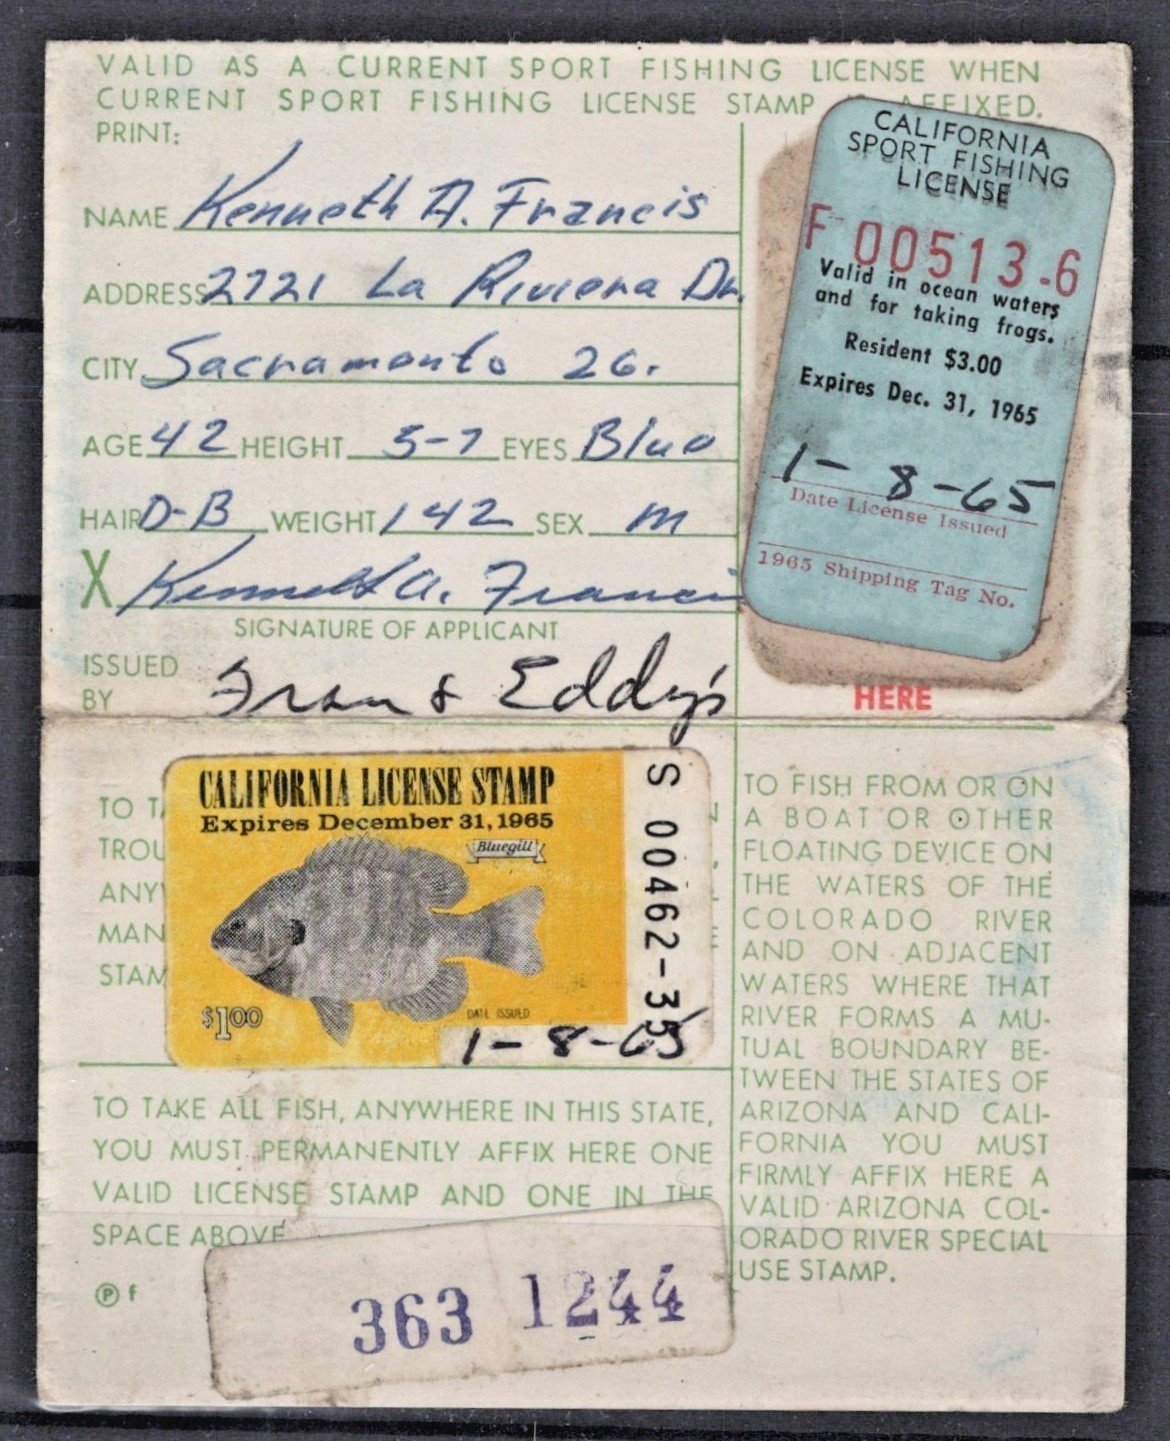 VALID AS A CURRENT SPORT FISHING LICENSE WHEN
CURRENT SPORT FISHING LICENSE STAMP IS AFFIXED.
PRINT:
NAME Kenneth A. Francis
ADDRESS 2721 La Riviera Dr.
CITY Sacramento 26.
AGE 42 HEIGHT 5-7 EYES Blue
HAIR D-B WEIGHT 142 SEX M
X Kenneth A. Francis
SIGNATURE OF APPLICANT
ISSUED
BY Fran & Eddy's
CALIFORNIA
SPORT FISHING
LICENSE
F 00513-6
Valid in ocean waters
and for taking frogs.
Resident $3.00
Expires Dec. 31, 1965
1-8-65
Date License Issued
1965 Shipping Tag No.
HERE
TO
TROU
ANY
MAN
STAM
CALIFORNIA LICENSE STAMP
Expires December 31, 1965
Bluegill
$1.00
DATE ISSUED
1-8-65
S 00462-35
TO TAKE ALL FISH, ANYWHERE IN THIS STATE,
YOU MUST PERMANENTLY AFFIX HERE ONE
VALID LICENSE STAMP AND ONE IN THE
SPACE ABOVE
Ⓟ f
363 1244
TO FISH FROM OR ON
A BOAT OR OTHER
FLOATING DEVICE ON
THE WATERS OF THE
COLORADO RIVER
AND ON ADJACENT
WATERS WHERE THAT
RIVER FORMS A MU-
TUAL BOUNDARY BE-
TWEEN THE STATES OF
ARIZONA AND CALI-
FORNIA YOU MUST
FIRMLY AFFIX HERE A
VALID ARIZONA COL-
ORADO RIVER SPECIAL
USE STAMP.